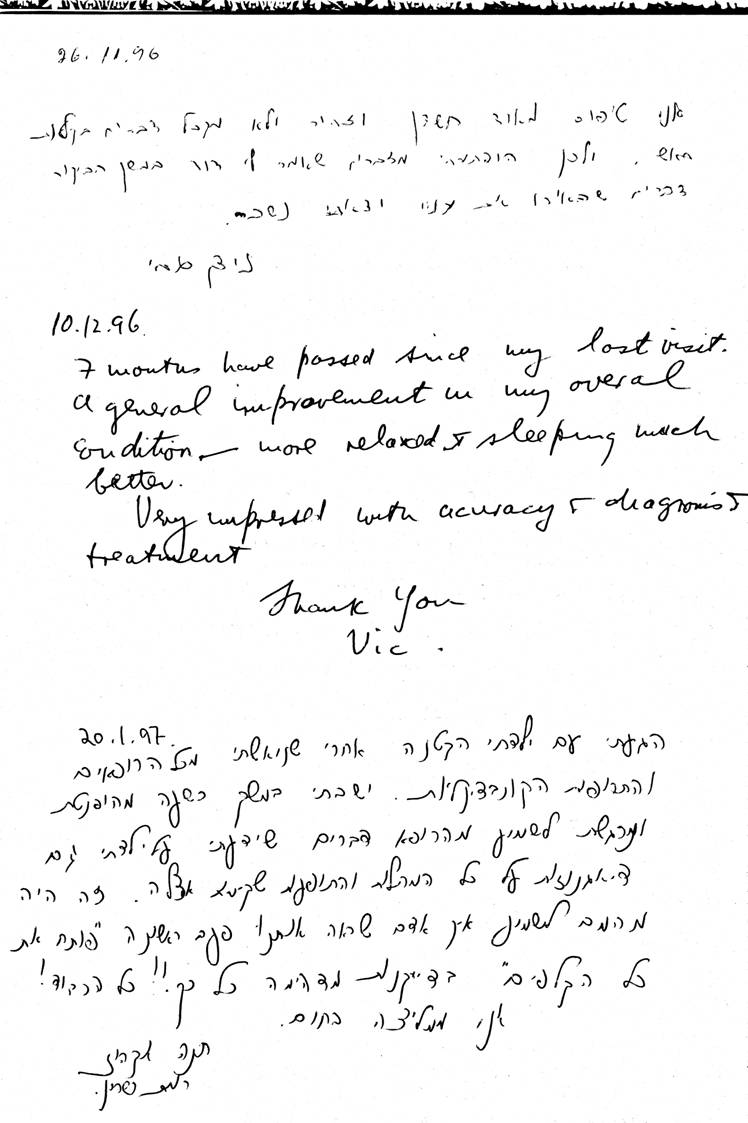 26.11.96
אני טיפוס מאוד חשדן וזהיר ולא מקבל דברים בקלות
ראש. ולכן הופתעתי מדברים שאמר לי דוד במשך הביקור
דברים שהאירו את עניי
ניצן
10.12.96.
7 months have passed since my last visit.
A general improvement in my overal
condition — more relaxed & sleeping much
better.
Very impressed with acuracy & diagnonis &
treatment
Thank You
Vic.
20.1.97.
הגעתי עם ילדתי הקטנה אחרי שנואשתי מכל הרופאים
והתרופות הקונבנציונליות. ישבתי במשך כשעה מהופנטת
ומרגשת לשמוע מהרופא דברים שידעתי על ילדתי גם
דיאגנוזות על כל המחלות והתופעות אצלה. זה היה
מהמם לשמוע איך אדם שראה אותנו פעם ראשונה "פותח את
כל הקלפים" בדייקנות מדהימה כל כך!! כל הכבוד!
אני ממליצה בחום.
חנה
רמת השרון.